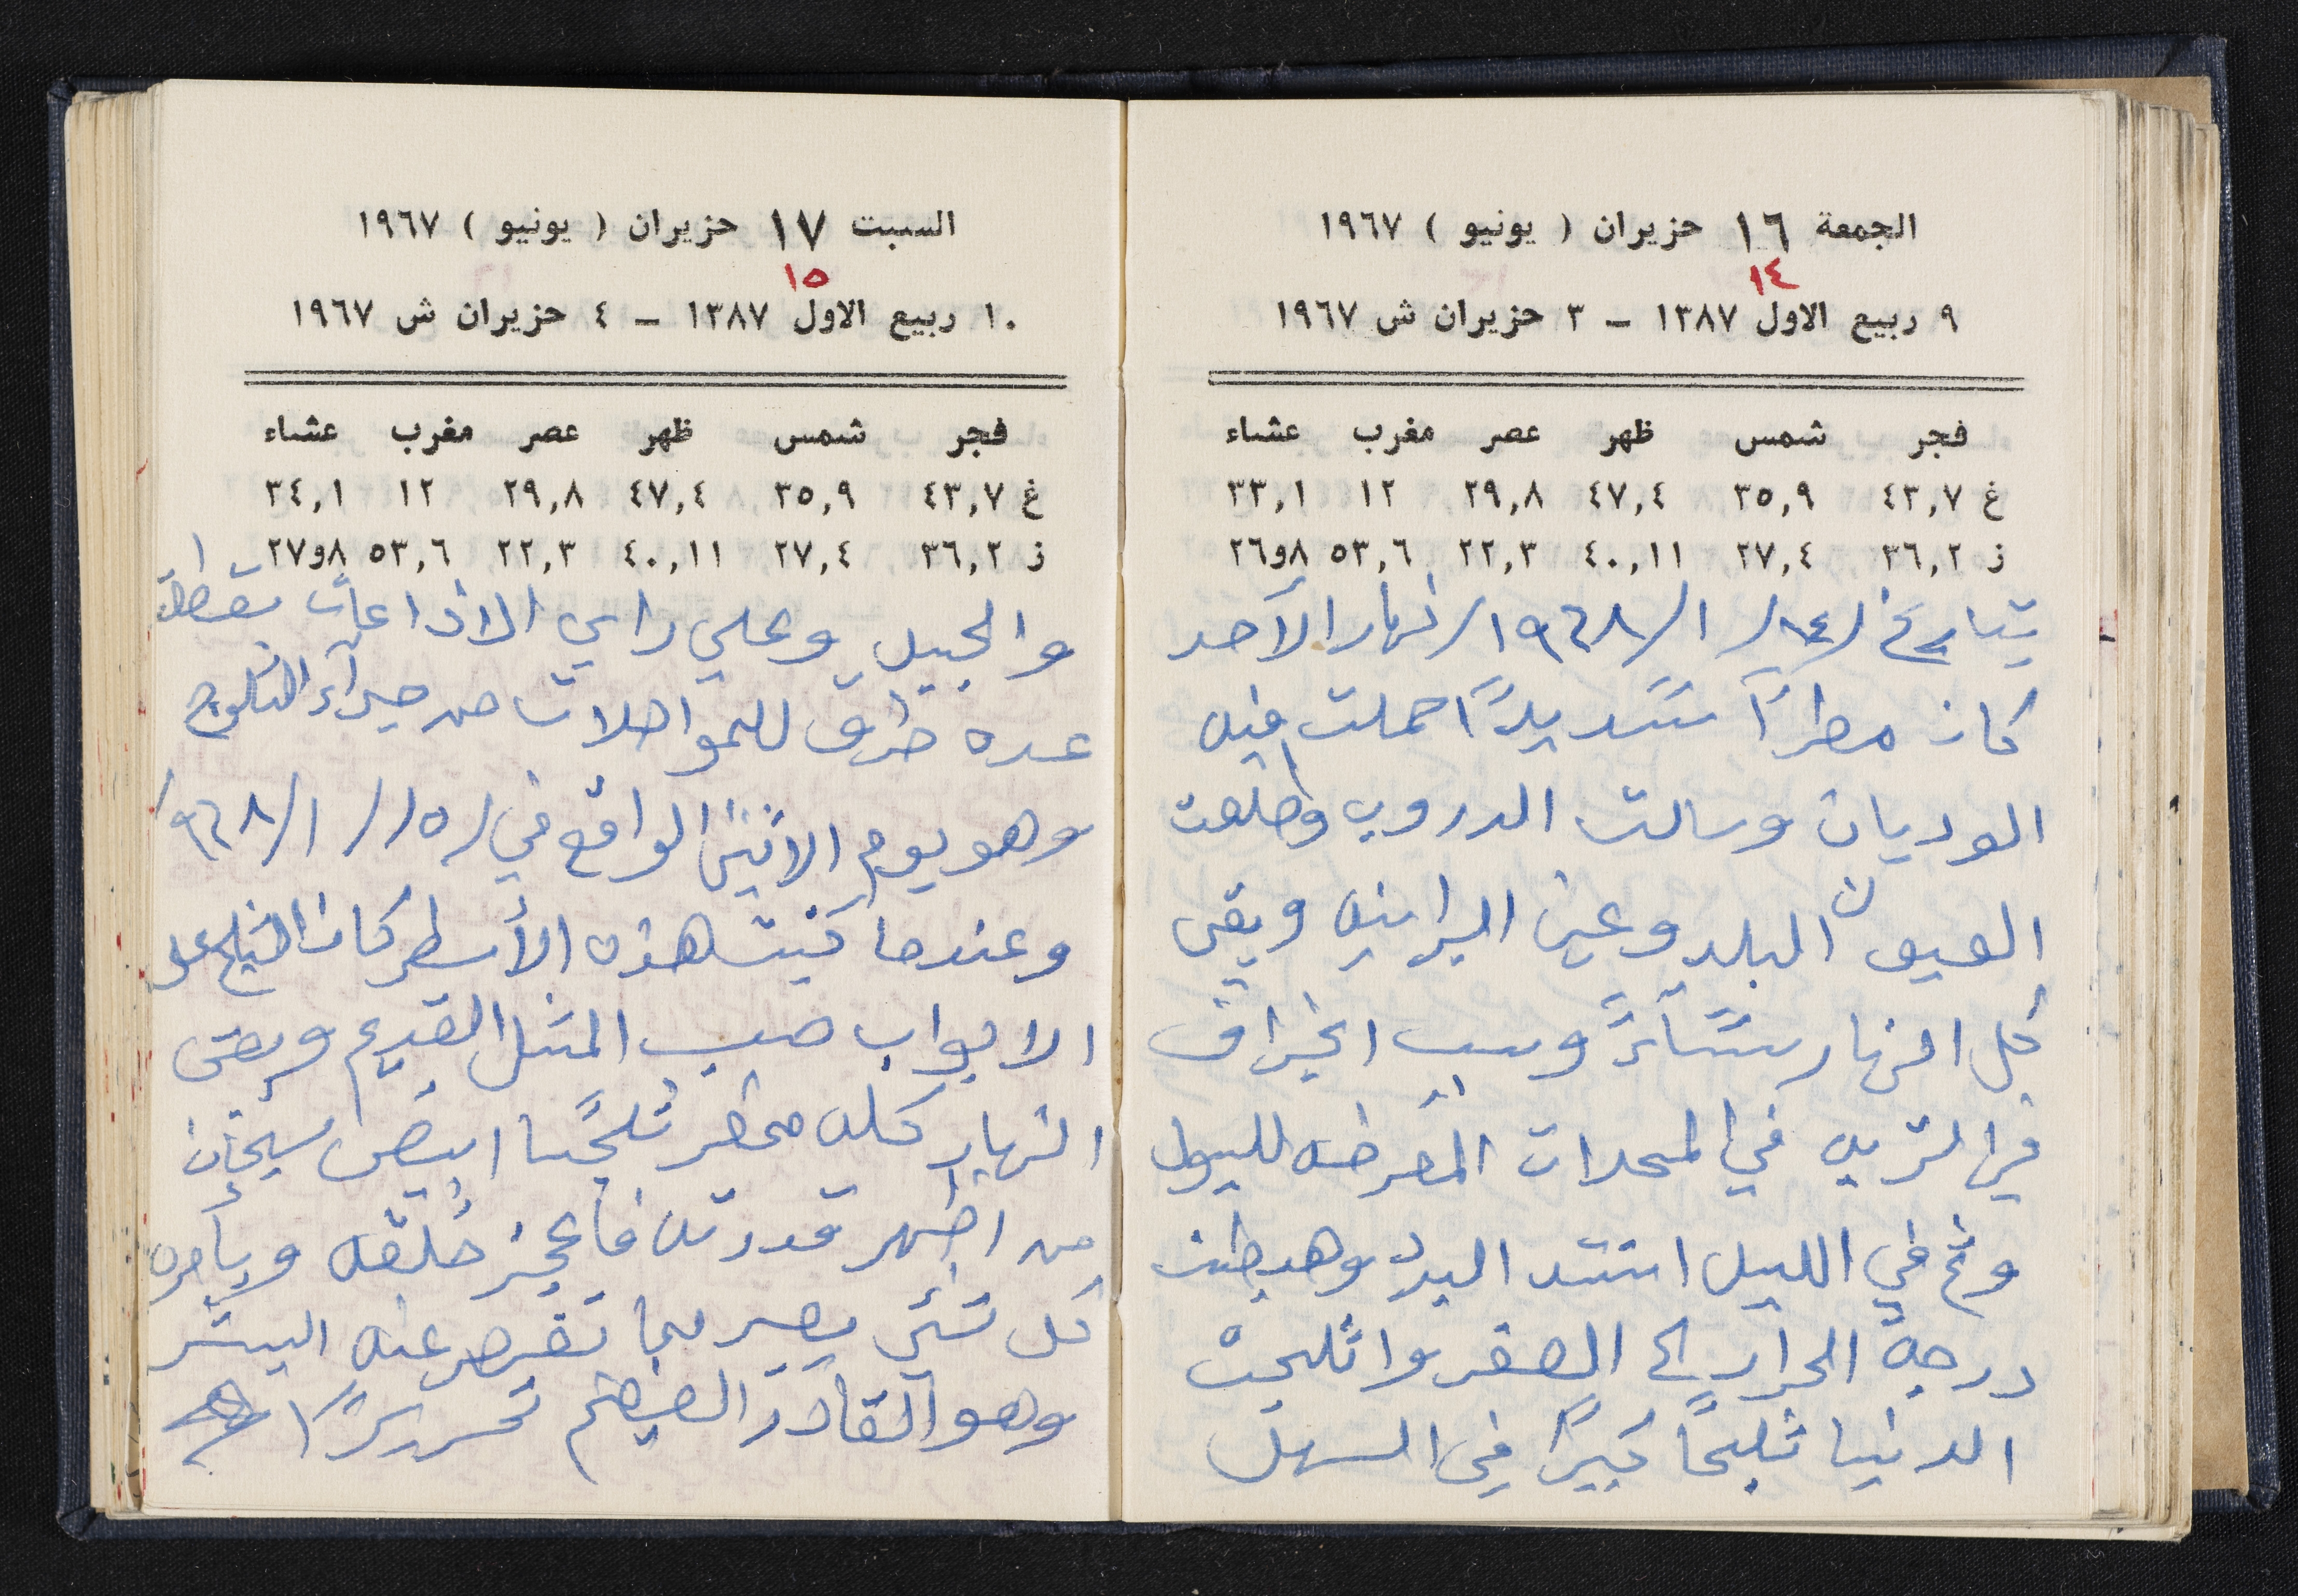 الجمعة ١٦ حزيران ( يونيو ) ١٩٦٧
١٤
٩ ربيع الاول ١٣٨٧ – ٣ حزيران ش ١٩٦٧
فجر شمس ظهر عصر مغرب عشاء
غ ٤٣,٧ ٣٥,٩ ٤٧,٤ ٢٩,٨ ١٢ ٣٣,١
ز ٣٦,٢ ٢٧,٤ ٤٠,١١ ٢٢,٣ ٥٣,٦ ٨و٢٦
بتاريخ /١٤/ ١/ ١٩٦٨/ نهار الأحد
كان مطراً شديداً حملت فيه
الوديان وسالت الدروب وطلعت
العيون البلد وعين البرانيه وبقى
كل النهار شتاءً وسبب انجراف
في التربه في المحلات المعرضه للسيول
وثم في الليل اشتد البرد وهبطت
درجة الحراره الى الصفر واثلجت
الدنيا ثلجاً كبيراً في السهل
السبت ١٧ حزيران ( يونيو ) ١٩٦٧
١٥
١٠ ربيع الاول ١٣٨٧ – ٤ حزيران ش ١٩٦٧
فجر شمس ظهر عصر مغرب عشاء
غ ٤٣,٧ ٣٥,٩ ٤٧,٤ ٢٩,٨ ١٢ ٣٤,١
ز ٣٦,٢ ٢٧,٤ ٤٠,١١ ٢٢,٣ ٥٣,٦ ٨و٢٧
والجبل وعلي راي الاذاعات
عده طرق للمواصلات من جراء الثلوج
وهو يوم الاثنين الواقع في /١٥/ ١/ ٩٦٨/
وعندما كتبت هذه الأسطر كان الثلج على
الابواب حسب المثل القديم وبقى
النهار كله ثلجًا ابيض سبحان
من اظهر قدرته فأعجز خلقه وبأمره
كل شئ يصير بما تقصر عنه البشر
وهو القادر العظيم تحريرًا